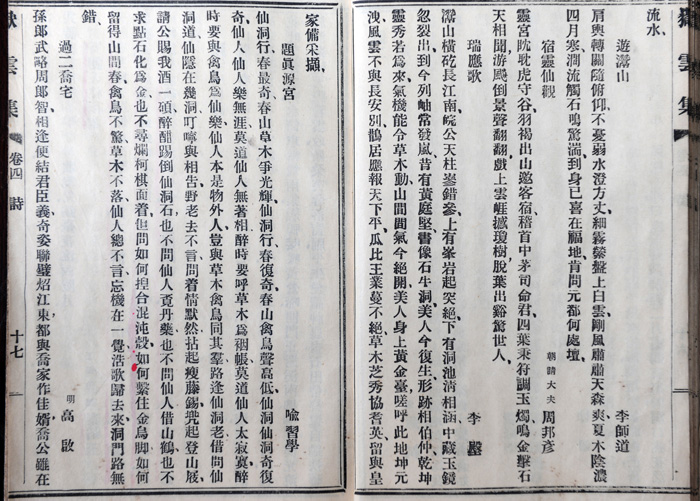 嶽雲集
流水、
遊灊山 李師道
肩輿轉關隨俯仰、不憂弱水澄方丈、細霧縈盤上白雲、剛風肅肅天森爽、夏木陰濃
四月寒、澗流觸石鳴驚湍、到身已喜在福地、肯問元都何處壇、
宿靈仙觀 朝請大夫 周邦彥
靈宮眈眈虎守谷、羽褐出山邀客宿、稽首中茅司命君、四葉秉符調玉燭、鳴金擊石
天相聞、游颸倒景聲翻翻、戲上雲崕撼瓊樹、脫葉出谿驚世人、
瑞應歌 李
灊山橫矻長江南、皖公天柱峯錯參、上有峯岩起突絕、下有洞池清相涵、中藏玉鏡
忽裂出、到今列岫常發嵐、昔有黃庭堅、書像石牛洞、美人今復生、形跡相伯仲、乾坤
靈秀若為來、氣機能令草木動、山間閒氣今絕開、美人身上黃金臺、嗟呼此地坤元
洩、風雲不與長安別、鵲居應報天下平、瓜比王業蔓不絕、草木芝秀協耆英、留與皇
家備采擷、
題眞源宮 喻習學
仙洞行、春最奇、春山草木爭光輝、仙洞行、春復奇、春山禽鳥聲高低、仙洞仙奇復
奇、仙人仙人樂無涯、莫道仙人無著相、醉時要呼草木爲裀帳、莫道仙人太寂寞、醉
時要與禽鳥爲仙樂、仙人本是物外人、豈與草木禽鳥同其羣、路逢仙洞老、借問仙
洞道、仙隱在幾洞、叮嚀與相告、野老去不言、問着情默然、拈起瘦藤錫、兠起登山屐、
請公賜我酒一碩、醉醋踢倒仙洞石、也不問仙人覓丹藥、也不問仙人借山鶴、也不
求點石化爲金、也不尋爛柯棋面着、但問如何捏合混沌殼、如何繫住金烏脚、如何
留得山間春、禽鳥不驚草木不落、仙人總不言、忘機在一覺、浩歌歸去來、洞門路無
錯、
過二喬宅 明 高啟
孫郎武略周郎智、相逢便結君臣義、奇姿聯璧焰江東、都與喬家作佳婿、喬公雖在
嶽雲集 卷四 詩 十七